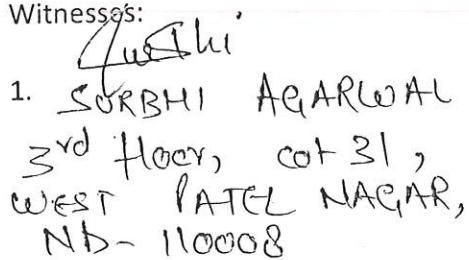 Witnesses:
1. SURBHI AGARWAL
3rd floor, cot 31,
WEST PATEL NAGAR,
ND- 110008